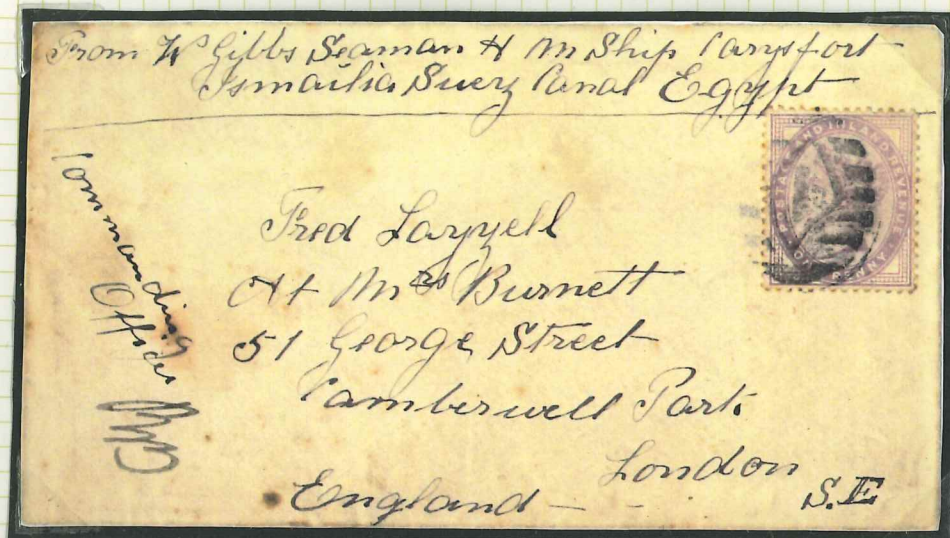 From Wm Gibbs Seaman H M Ship Carysfort
Ismailia Suez Canal Egypt
Commanding
Officer
POSTAGE AND INLAND REVENUE
ONE PENNY
Fred
At Mrs Burnett
51 George Street
Camberwell Park
London
England S.E